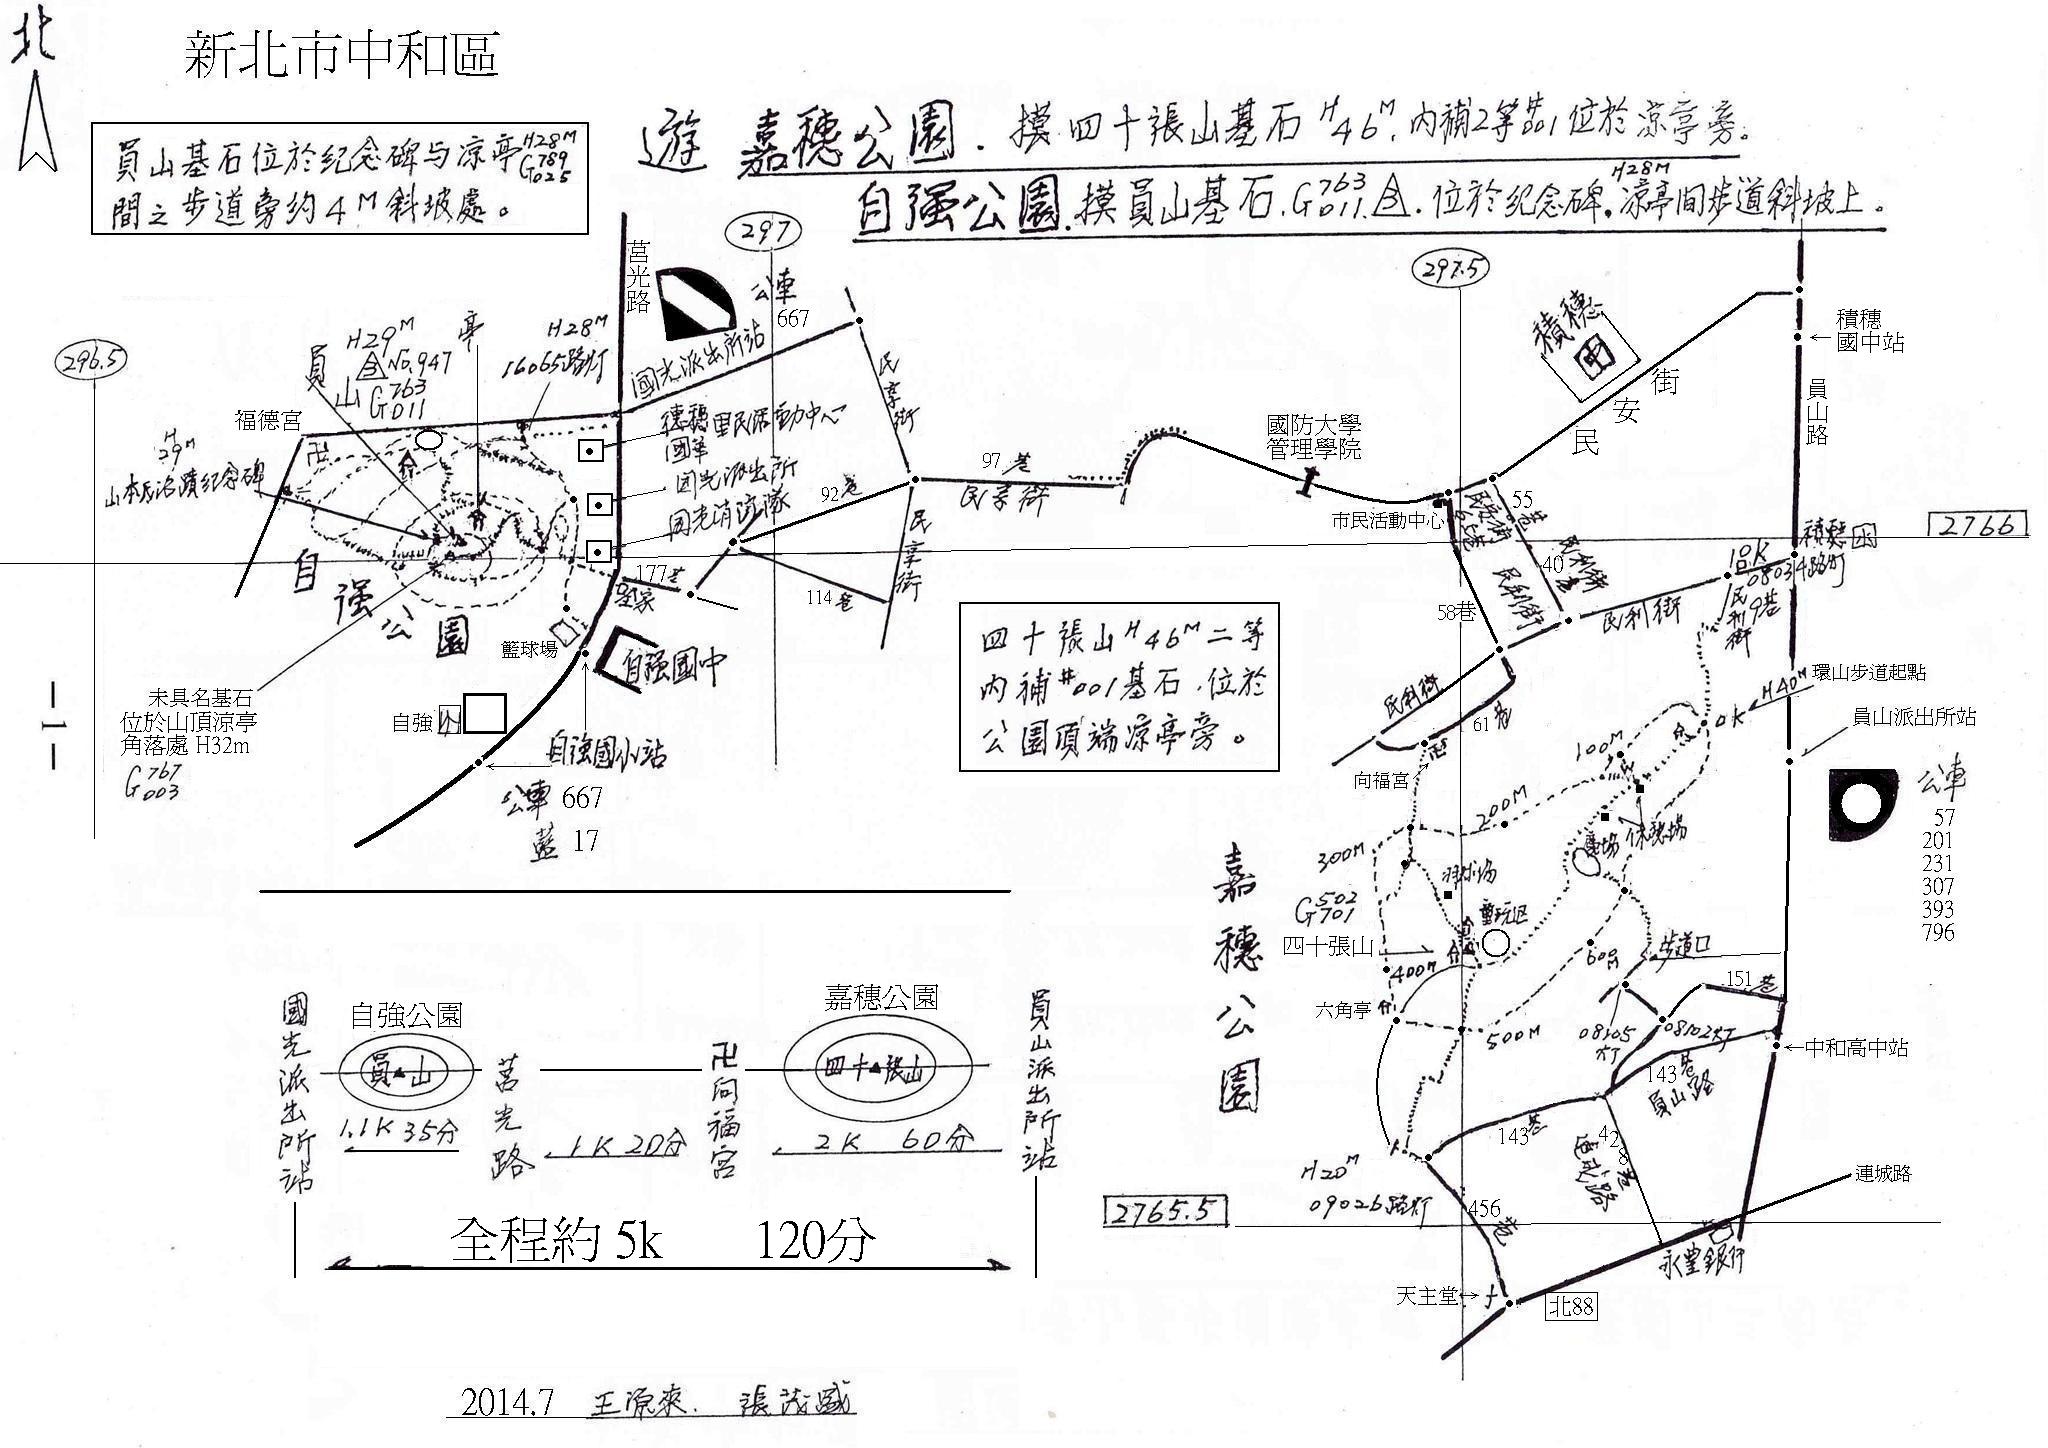 北
新北市中和區
員山基石位於纪念碑与凉亭 H28M G789 025
間之步道旁約4M斜坡處。
遊 嘉穗公園. 摸四十張山基石 H46M. 內補2等#001位於凉亭旁。
自强公園. 摸員山基石. G763 011. 位於纪念碑. 凉亭間步道斜坡上。
H28M
296.5
297
297.5
莒光路
公車
667
國光派出所站
民享街
員山
H29M
No.947
G763
011
亭
H28M
16065路灯
福德宮
卍
H29M
德穗
國華
里民活動中心
国光派出所
92巷
97巷
民享街
民享街
177巷
114巷
自强公園
籃球場
自强國中
自強小
自強國小站
公車 667
藍 17
未具名基石
位於山頂涼亭
角落處 H32m
G767
003
國防大學
管理學院
積穗
中
民安街
積穗
國中站
員山路
市民活動中心
55巷
40巷
民利街
民利街
民利街
民利街
58巷
61巷
2766
08034路灯
民利街9巷
環山步道起點
H40M
0K
員山派出所站
公車
57
201
231
307
393
796
四十張山H46M二等
內補#001基石.位於
公園頂端凉亭旁。
向福宮
卍
100M
200M
300M
G502
701
四十張山
400M
六角亭
500M
600M
步道口
151巷
08105灯
08102灯
中和高中站
143巷
員山路
143巷
連城路
428巷
嘉穗公園
H20M
09026路灯
456巷
2765.5
連城路
永豐銀行
天主堂
北88
- 1 -
國光派出所站
自強公園
員山
莒光路
卍向福宮
嘉穗公園
四十張山
員山派出所站
1.1K 35分
1K 20分
2K 60分
全程約 5k 120分
2014.7 王源來. 張茂盛